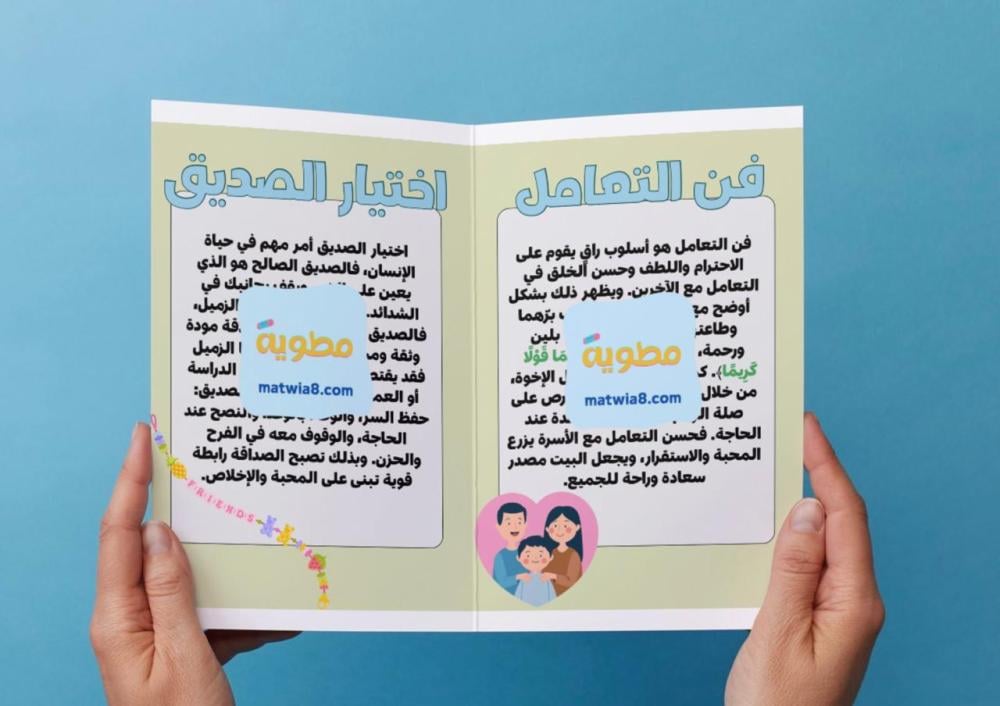 فن التعامل
فن التعامل هو أسلوب راقٍ يقوم على
الاحترام واللطف وحسن الخلق في
التعامل مع الآخرين. ويظهر ذلك بشكل
أوضح مع برّهما
بلين
ورحمة، قَوْلًا
كَرِيمًا﴾. الإخوة،
من خلال على
صلة عند
الحاجة. فحسن التعامل مع الأسرة يزرع
المحبة والاستقرار، ويجعل البيت مصدر
سعادة وراحة للجميع.
مطوية
matwia8.com
اختيار الصديق
اختيار الصديق أمر مهم في حياة
الإنسان، فالصديق الصالح هو الذي
يعين بجانبك في
الشدائد. الزميل،
فالصديق مودة
وثقة الزميل
فقد الدراسة
أو
حفظ السر، والنصح عند
الحاجة، والوقوف معه في الفرح
والحزن. وبذلك تصبح الصداقة رابطة
قوية تبنى على المحبة والإخلاص.
مطوية
matwia8.com
FRIENDS